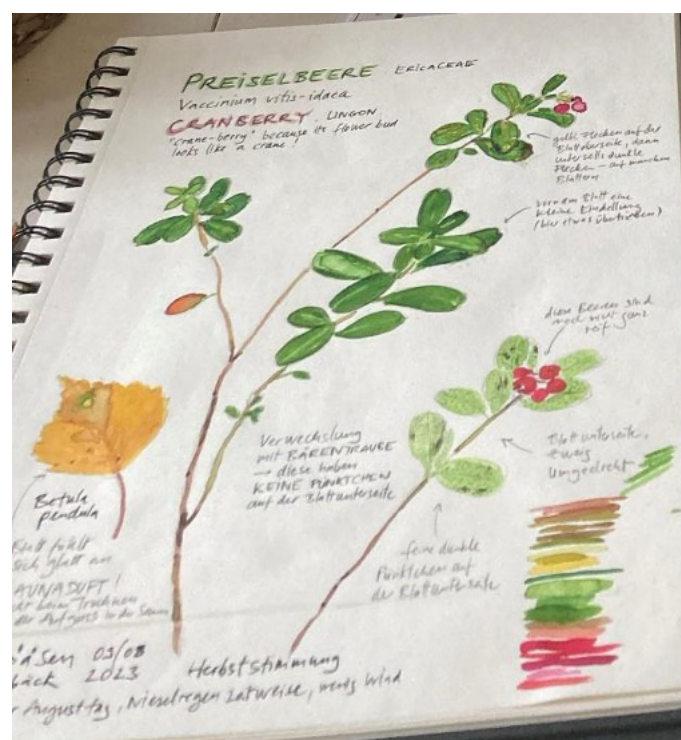 PREISELBEERE ERICACEAE
Vaccinium vitis-idaea
CRANBERRY, LINGON.
"crane-berry" because its flower bud
looks like a crane!
gelbe Flecken auf der
Blattoberseite, dann
unterseits dunkle
Flecken – auf manchen
Blättern
vorn am Blatt eine
kleine Eindellung
(hier etwas übertrieben)
diese Beeren sind
noch nicht ganz
reif
Verwechslung
mit BÄRENTRAUBE
→ diese haben
KEINE PÜNKTCHEN
auf der Blattunterseite
Blattunterseite,
Zweig
umgedreht
Betula
pendula
Blatt fühlt
sich glatt an
AUNADUFT!
beim Trocknen
der Aufguss in der Sauna
feine dunkle
Pünktchen auf
der Blattunterseite
03/08
bäck 2023
Herbststimmung
Augusttag, Nieselregen zeitweise, wenig Wind